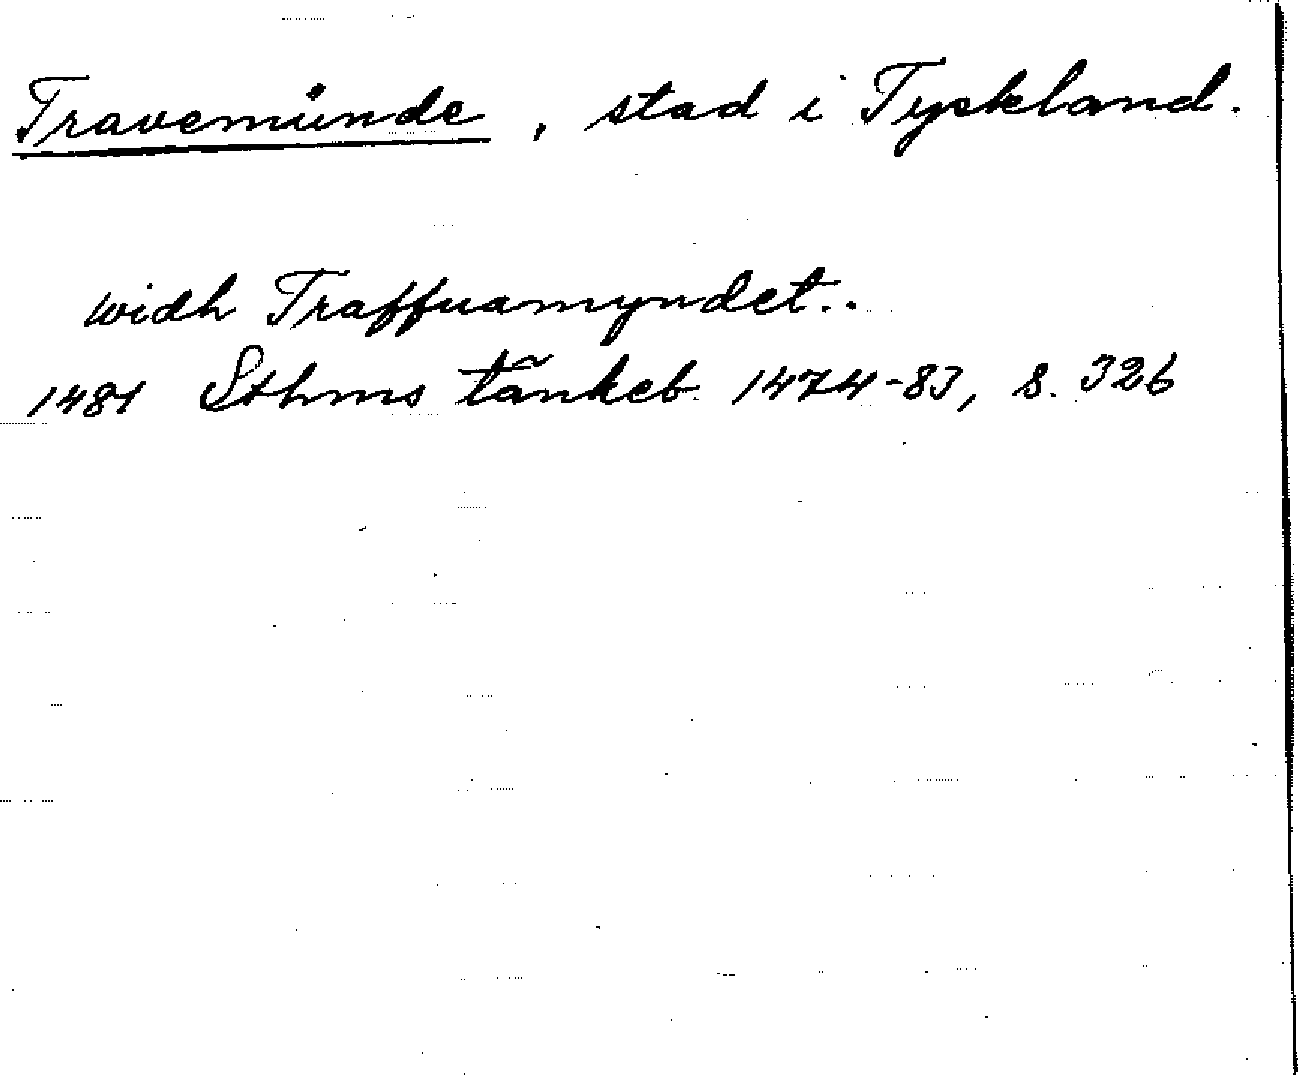 Travemünde, stad i Tyskland.
widh Traffuamyndet..
1481 Sthms tänkeb. 1474-83, s. 326